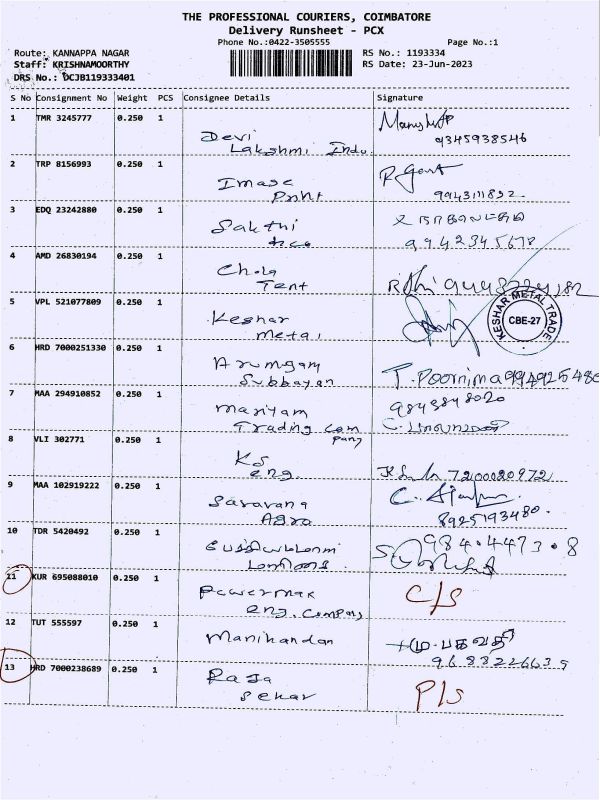 THE PROFESSIONAL COURIERS, COIMBATORE
Delivery Runsheet - PCX
Phone No.:0422-3505555 Page No.:1
Route: KANNAPPA NAGAR RS No.: 1193334
Staff: KRISHNAMOORTHY RS Date: 23-Jun-2023
DRS No.: DCJB119333401
S No Consignment No Weight PCS Consignee Details Signature
1 TMR 3245777 0.250 1
Devi 9345938546
Lakshmi Indu
2 TRP 8156993 0.250 1
Image
Print
3 EDQ 23242880 0.250 1
Sakthi
9942345678
4 AMD 26830194 0.250 1
Chola
Tent
5 VPL 521077809 0.250 1
Keshar KESHAR METAL TRADE
Metal CBE-27
6 HRD 7000251330 0.250 1
Arumgam
Subbayan T. Poornima
7 MAA 294910852 0.250 1
Mariyam 9843848020
Trading Com
pany
8 VLI 302771 0.250 1
KS
eng. 7200020972
9 MAA 102919222 0.250 1
Saravana
Agro 8925193480.
10 TDR 5420492 0.250 1
11 KUR 695088010 0.250 1
Powermax C/S
eng. Company
12 TUT 555597 0.250 1
Manikandan மு.பகவதி
13 HRD 7000238689 0.250 1
Raja P/S
Sekar